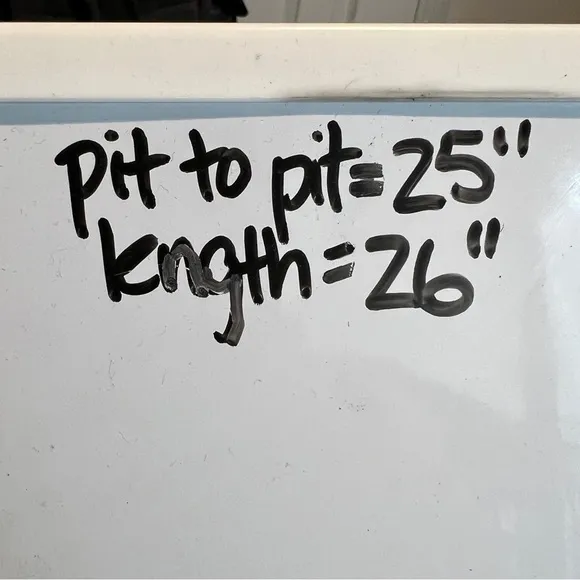 pit to pit = 25"
length = 26"